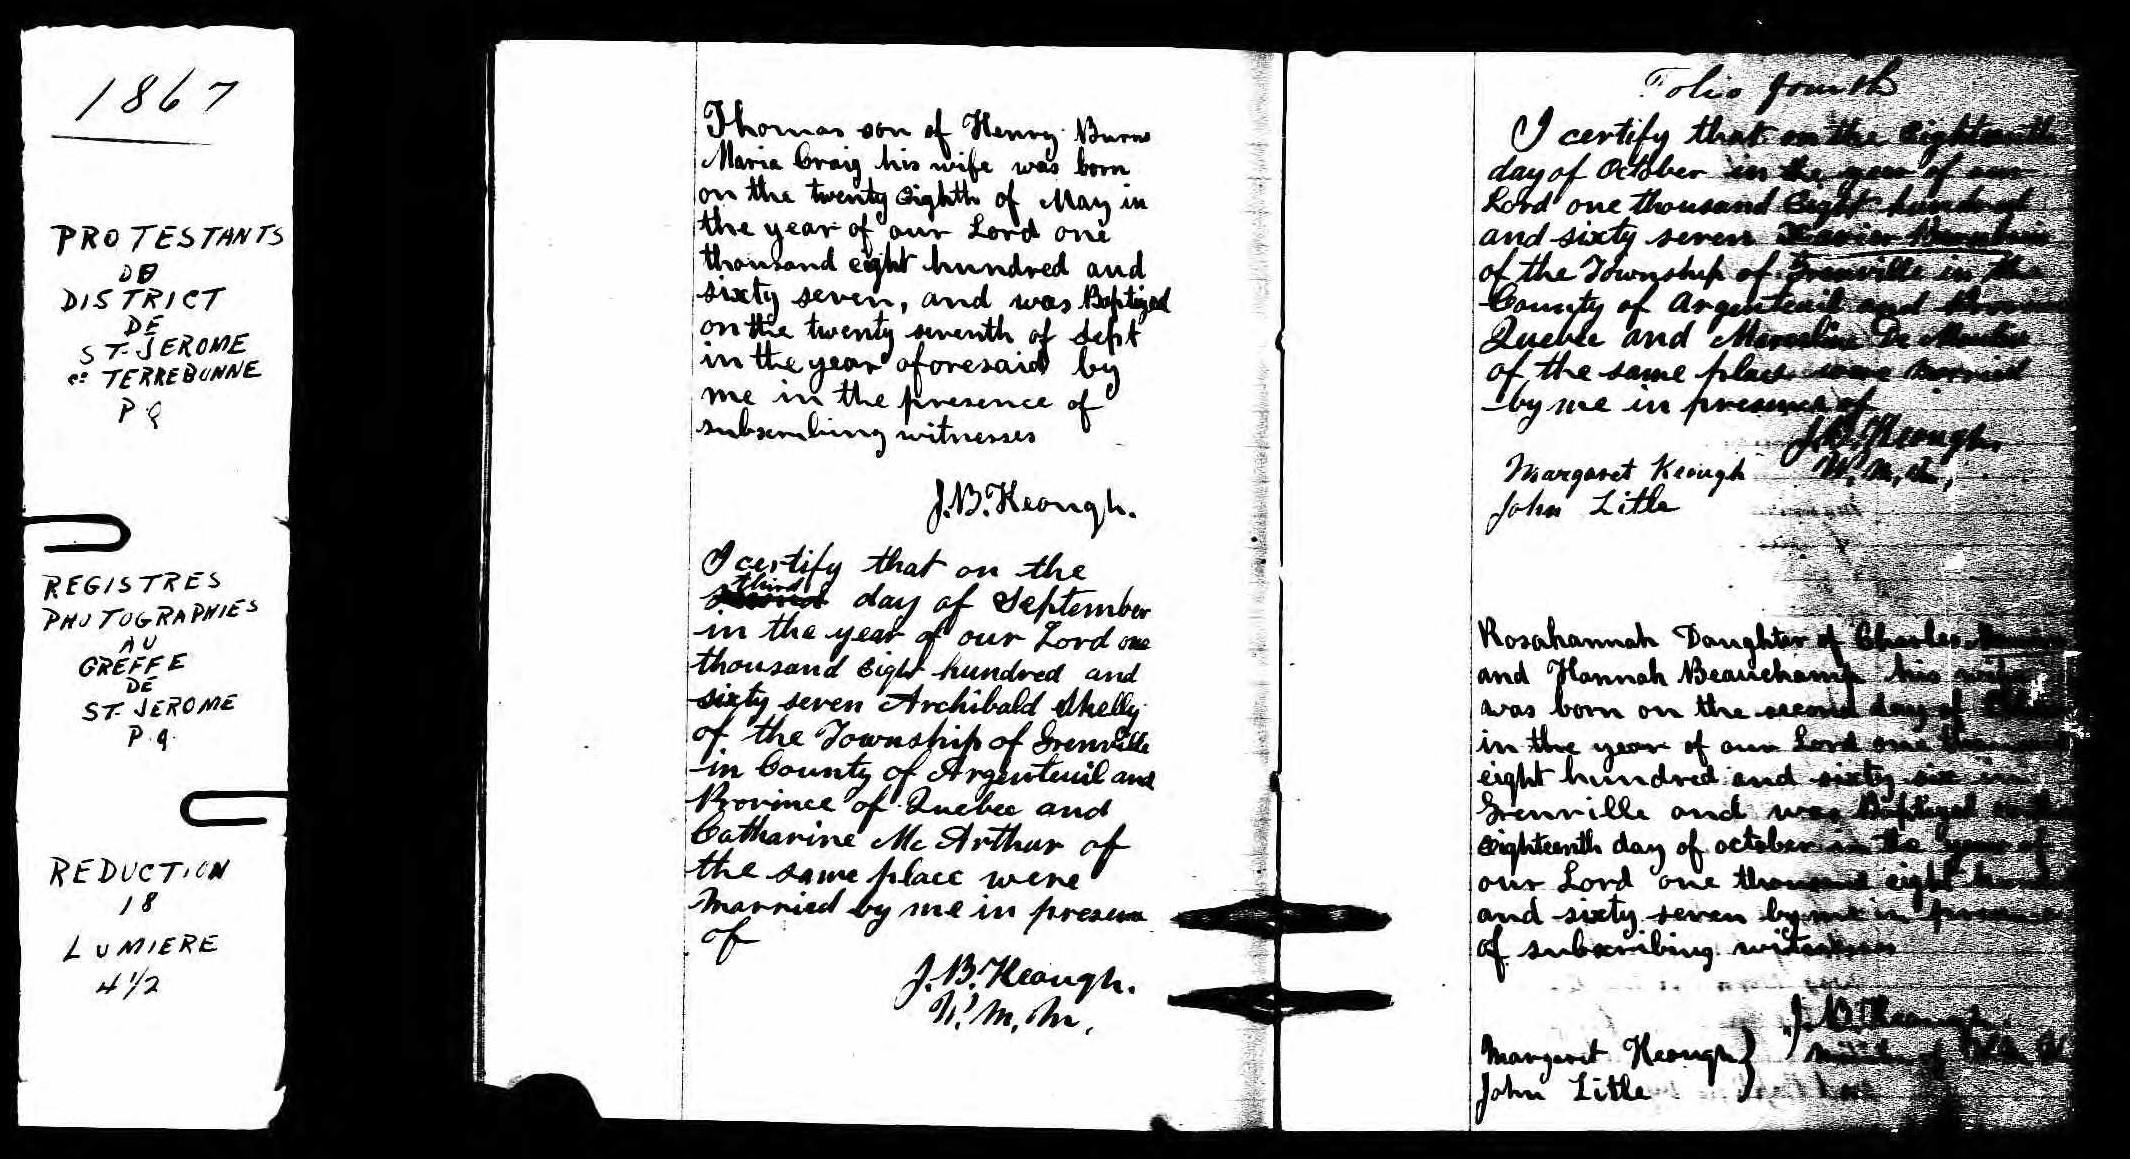 1867
PROTESTANTS
DE
DISTRICT
DE
ST-JEROME
et TERREBONNE
P Q
REGISTRES
PHOTOGRAPHIES
AU
GREFFE
DE
ST-JEROME
P.Q.
REDUCTION
18
LUMIERE
4 1/2
Thomas son of Henry Burns
Maria Craig his wife was born
on the twenty Eighth of May in
the year of our Lord one
thousand eight hundred and
sixty seven, and was Baptized
on the twenty seventh of Sept
in the year aforesaid by
me in the presence of
subscribing witnesses
J.B. Keough.
I certify that on the
third
day of September
in the year of our Lord one
thousand Eight hundred and
sixty seven Archibald Skelly
of the Township of Grenville
in County of Argenteuil and
Province of Quebec and
Catharine Mc Arthur of
the same place were
Married by me in presence
of
J.B. Keough.
W. M. M.
Folio fourth
I certify that on the Eighteenth
day of October in the year of our
Lord one thousand Eight hundred
and sixty seven
of the Township of Grenville in the
County of Argenteuil and
Quebec and
of the same place were Married
by me in presence of
J.B. Keough.
Margaret Keough W. M.
John Litle
Rosahannah Daughter of Charles
and Hannah Beauchamp his wife
was born on the second day of
in the year of our Lord one thousand
eight hundred and sixty six in
Grenville and was Baptized
Eighteenth day of october in the year of
our Lord one thousand eight hundred
and sixty seven by me in presence
of subscribing witnesses
J.B. Keough
Margaret Keough }
John Litle